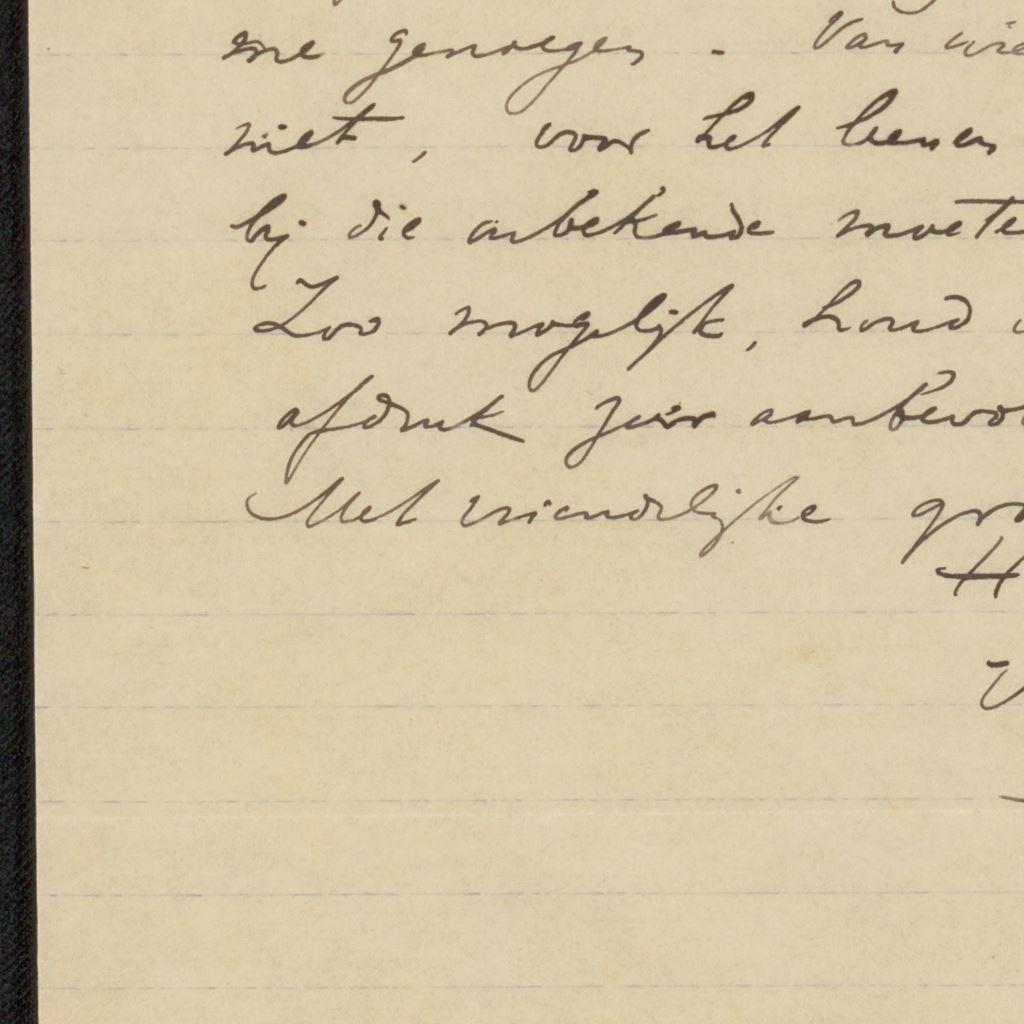 me genoegen. Van wie
niet, voor het leenen
bij die onbekende moete
Zoo mogelijk, houd
afdruk zeer aanbevo
Met vriendelijke gro
H
V